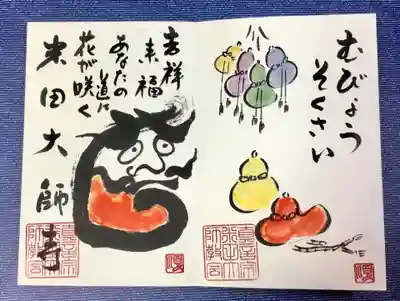 むびょう
そくさい
吉祥
来福
あなたの
道に
花が咲く
米田大師寺